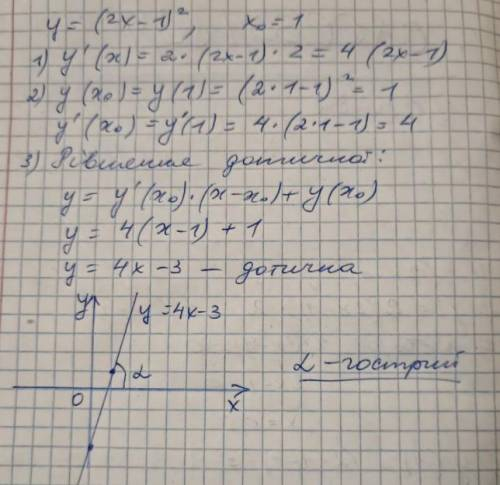 y = (2x-1)², x₀ = 1
1) y'(x) = 2·(2x-1)·2 = 4(2x-1)
2) y(x₀) = y(1) = (2·1-1)² = 1
y'(x₀) = y'(1) = 4·(2·1-1) = 4
3) Рівняння дотичної:
y = y'(x₀)·(x-x₀)+y(x₀)
y = 4(x-1)+1
y = 4x-3 — дотична
y
y=4x-3
α
α -гострий
0
x